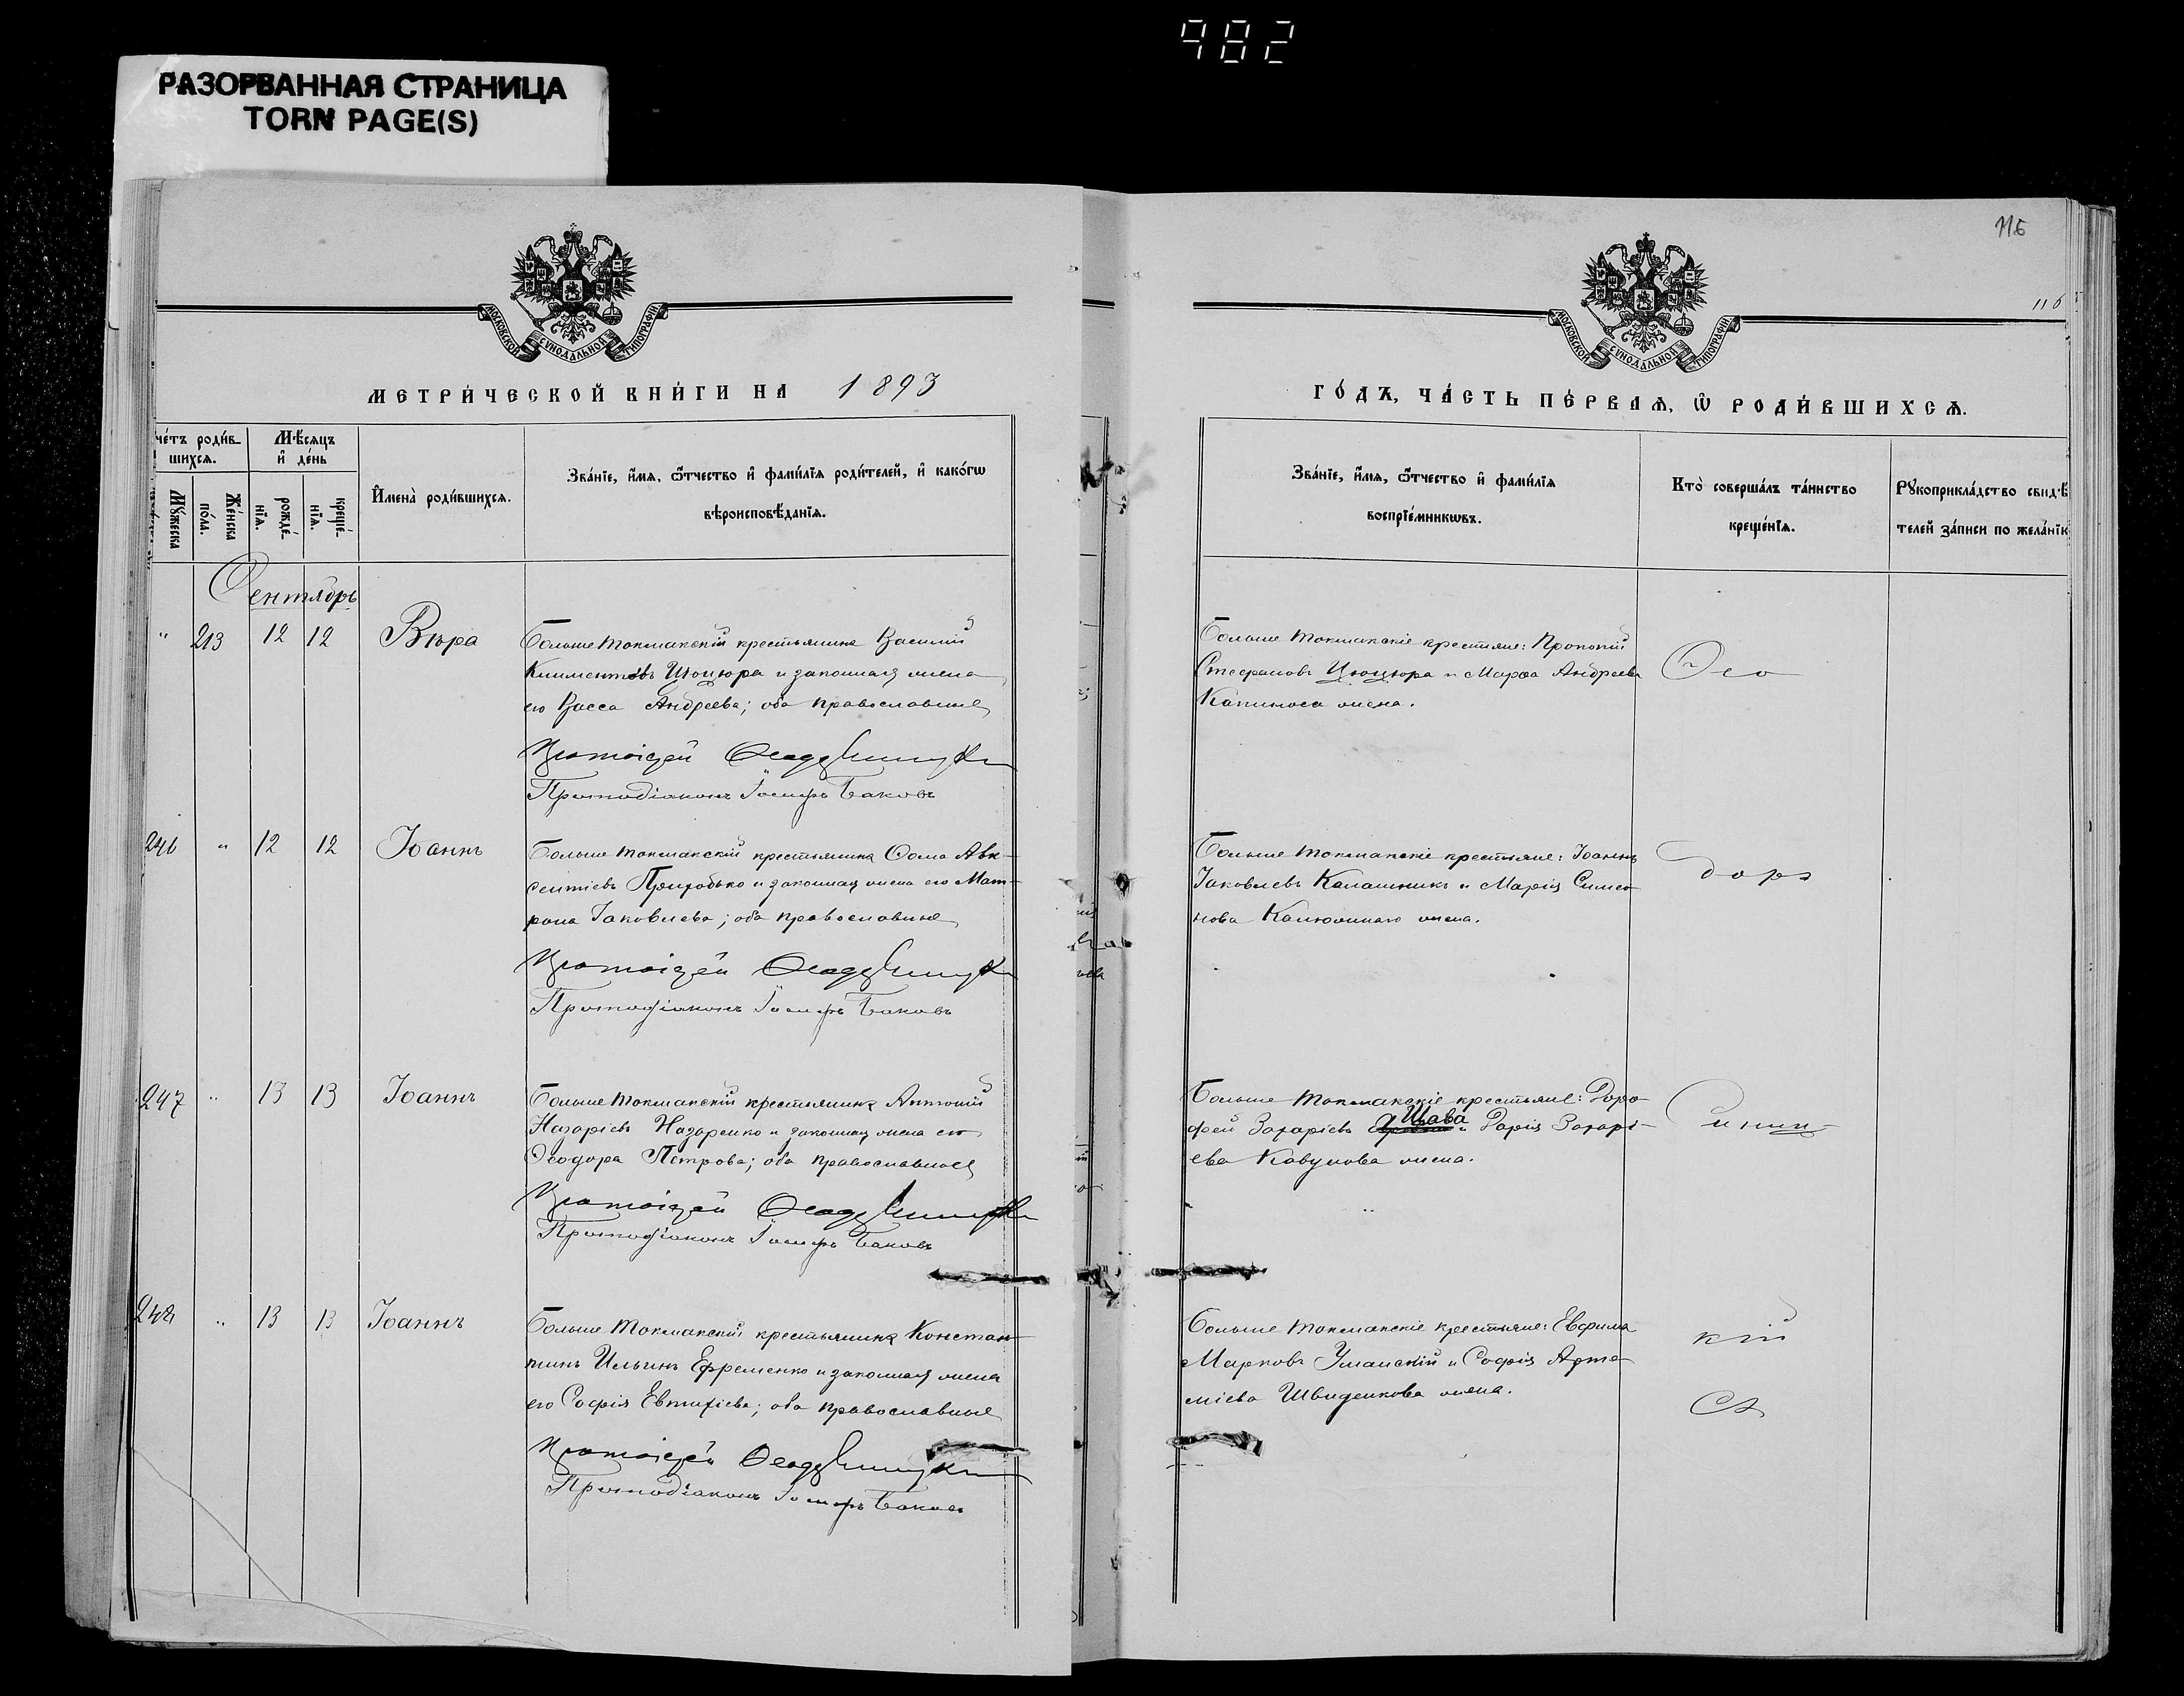 982
РАЗОРВАННАЯ СТРАНИЦА
TORN PAGE(S)
116
116
МОСКОВСКОЙ СУНОДАЛЬНОЙ ТИПОГРАФІИ
МОСКОВСКОЙ СУНОДАЛЬНОЙ ТИПОГРАФІИ
МЕТРИ́ЧЕСКОЙ КНИ́ГИ НА 1893
ГО́ДЪ, ЧА́СТЬ ПЕ́РВАЯ, Ѿ РОДИ́ВШИХСЯ.
че́тъ роди́в-
шихся.
Мѣ́сяцъ
и де́нь
Му́жеска
Же́нска
по́ла.
рожде́-
нїя.
креще́-
нїя.
Имена̀ роди́вшихся.
Зва́нїе, и́мя, ѻ́тчество и фами́лїя роди́телей, и како́гѡ
вѣроисповѣ́данїя.
Зва́нїе, и́мя, ѻ́тчество и фами́лїя
воспрїе́мникѡвъ.
Кто̀ соверша́лъ та́инство
креще́нїя.
Рукоприкла́дство свидѣ́
телей за́писи по жела́нїю
Сентябрь
" 213 12 12 Вѣра
Больше Токмакскій крестьянинъ Василій
Климентовъ Цюцюра и законная жена
его Васса Андреева; оба православные
Протоіерей Ѳеодоръ Синицкій
Протодіаконъ Іосифъ Баковъ
Больше Токмакскіе крестьяне: Прокопій
Стефановъ Цюцюра и Марѳа Андреева
Капиноса жена.
Ѳео
246 " 12 12 Іоаннъ
Больше Токмакскій крестьянинъ Ѳома Авк-
сентіевъ Пригобько и законная жена его Мат-
рона Іаковлева; оба православные
Протоіерей Ѳеодоръ Синицкій
Протодіаконъ Іосифъ Баковъ
Больше Токмакскіе крестьяне: Іоаннъ
Іаковлевъ Калашникъ и Марія Симео-
нова жена.
доръ
247 " 13 13 Іоаннъ
Больше Токмакскій крестьянинъ Антоній
Назаріевъ Назаренко и законная жена его
Ѳеодора Петрова; оба православные
Протоіерей Ѳеодоръ Синицкій
Протодіаконъ Іосифъ Баковъ
Больше Токмакскіе крестьяне: Доро-
фей Захаріевъ Шава и Дарія Захарі-
ева Кавунова жена.
Синиц-
248 " 13 13 Іоаннъ
Больше Токмакскій крестьянинъ Констан-
тинъ Ильинъ Ефременко и законная жена
его Софія Евтихіева; оба православные
Протоіерей Ѳеодоръ Синицкій
Протодіаконъ Іосифъ Баковъ
Больше Токмакскіе крестьяне: Евфимъ
Марковъ Уманскій и Софія Арте-
міева Швиденкова жена.
кій